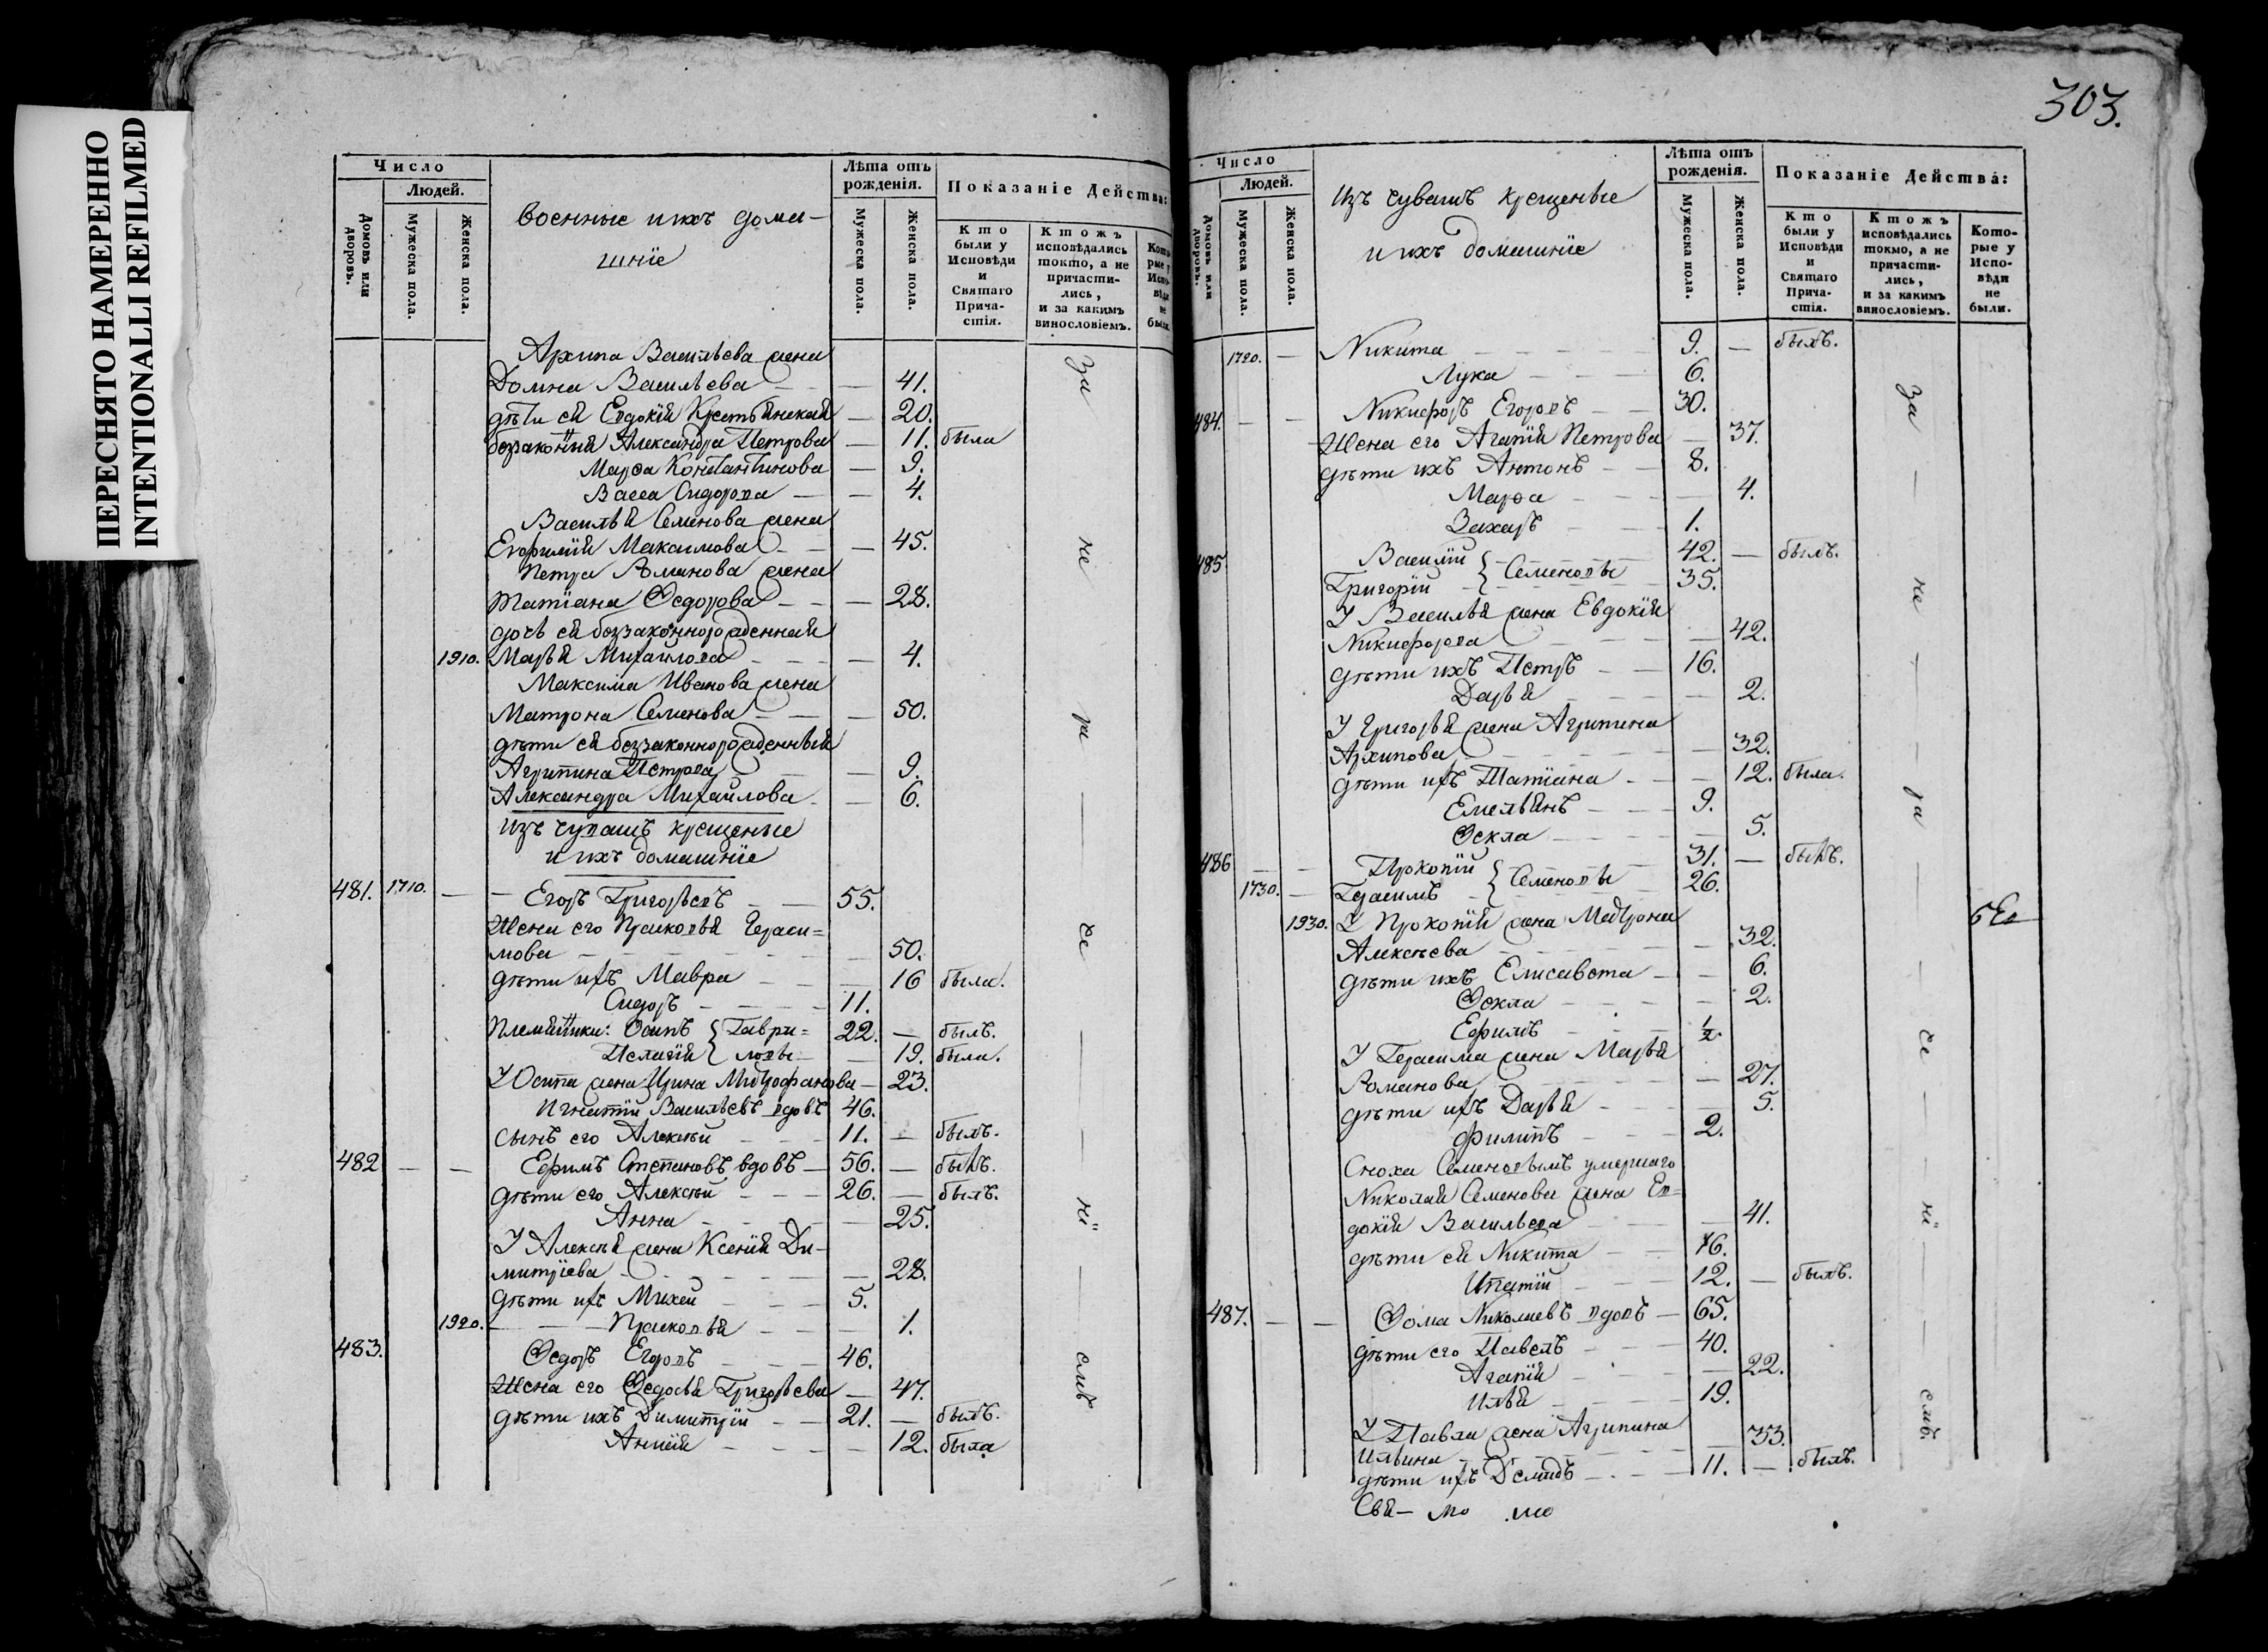 ПЕРЕСНЯТО НАМЕРЕННО
INTENTIONALLI REFILMED
Число
Людей.
Домовъ или дворовъ.
Мужеска пола.
Женска пола.
военные и ихъ дома-
шніе
Лѣта отъ рожденія.
Мужеска пола.
Женска пола.
Показаніе Действа:
Кто были у Исповѣди и Святаго Прича-стія.
Ктожъ исповѣдались токмо, а не причасти-лись, и за какимъ винословіемъ.
Кото-рые у Испо-вѣди не были.
Архипа Васильева жена
Домна Васильева — — 41.
дѣти ея Евдокія Крестьянская — 20.
Александра Петрова — 11. была
Марѳа Константинова — 9.
Васса Сидорова — — 4.
Василья Семенова жена
Максимова — — 45.
Петра Романова жена
Татіана Ѳедорова — — 28.
дочь ея беззаконнорожденная
1910. Марья Михайлова — — 4.
Максима Иванова жена
Матрона Семенова — — 50.
дѣти ея беззаконнорожденныя
Агрипина Петрова — — 9.
Александра Михайлова — 6.
Изъ чувашъ крещеные
и ихъ домашніе
481. 1710. — Егоръ Григорьевъ — — 55.
Жена его Прасковья Гераси=
мова — — 50.
дѣти ихъ Мавра — — 16 была.
Сидоръ — — 11.
Племянники: Осипъ { Гаври= 22. — былъ.
Пелагія { ловы — 19. была.
У Осипа жена Ирина Митрофанова — 23.
Игнатій Васильевъ вдовъ 46.
сынъ его Алексѣй — — 11. — былъ.
482 — — Ефимъ Степановъ вдовъ — 56. — былъ.
дѣти его Алексѣй — — 26. — былъ.
Анна — — 25.
У Алексѣя жена Ксенія Ди-
митріева — — 28.
дѣти ихъ Михей — — 5.
1920. — Прасковья — — 1.
483. Ѳедоръ Егоровъ — — 46.
Жена его Ѳедосья Григорьева — 47.
дѣти ихъ Димитрій — — 21. — былъ.
— — 12. была
за не ра де ні емъ
303.
Число
Людей.
Домовъ или дворовъ.
Мужеска пола.
Женска пола.
Изъ чувашъ крещеные
и ихъ домашніе
Лѣта отъ рожденія.
Мужеска пола.
Женска пола.
Показаніе Действа:
Кто были у Исповѣди и Святаго Прича-стія.
Ктожъ исповѣдались токмо, а не причасти-лись, и за какимъ винословіемъ.
Кото-рые у Испо-вѣди не были.
1720. — Никита — — 9. — былъ.
Лука — — 6.
484. — — Никифоръ Егоровъ — — 30.
Жена его Агапія Петрова — 37.
дѣти ихъ Антонъ — — 8.
Марѳа — — 4.
Захаръ — — 1.
485 Василій { Семеновы 42. — былъ.
Григорій { 35.
У Василья жена Евдокія
Никифорова — — 42.
дѣти ихъ Петръ — — 16.
Дарья — — 2.
У Григорья жена Агрипина
Архипова — — 32.
дѣти ихъ Татіана — — 12. была.
Емельянъ — — 9.
Ѳекла — — 5.
486 — — Прокопій { Семеновы 31. — былъ.
1730. — Герасимъ { 26.
1930. У Прокопія жена Матрона
Алексѣева — — 32.
дѣти ихъ Елисавета — — 6.
Ѳекла — — 2.
Ефимъ — — ½.
У Герасима жена Марья
Романова — — 27.
дѣти ихъ Дарья — — 5.
Филипъ — — 2.
Сноха Семеновымъ умершаго
Николая Семенова жена Ев=
докія Васильева — — 41.
дѣти ея Никита — — 16.
Ипатій — — 12. — былъ.
487. — — Ѳома Николаевъ вдовъ — 65.
дѣти его Павелъ — — 40.
Агапія — — 22.
Илья — — 19.
У Павла жена Агрипина
Ильина — — 33.
дѣти ихъ Демидъ — — 11. — былъ.
за не ра де ні емъ.